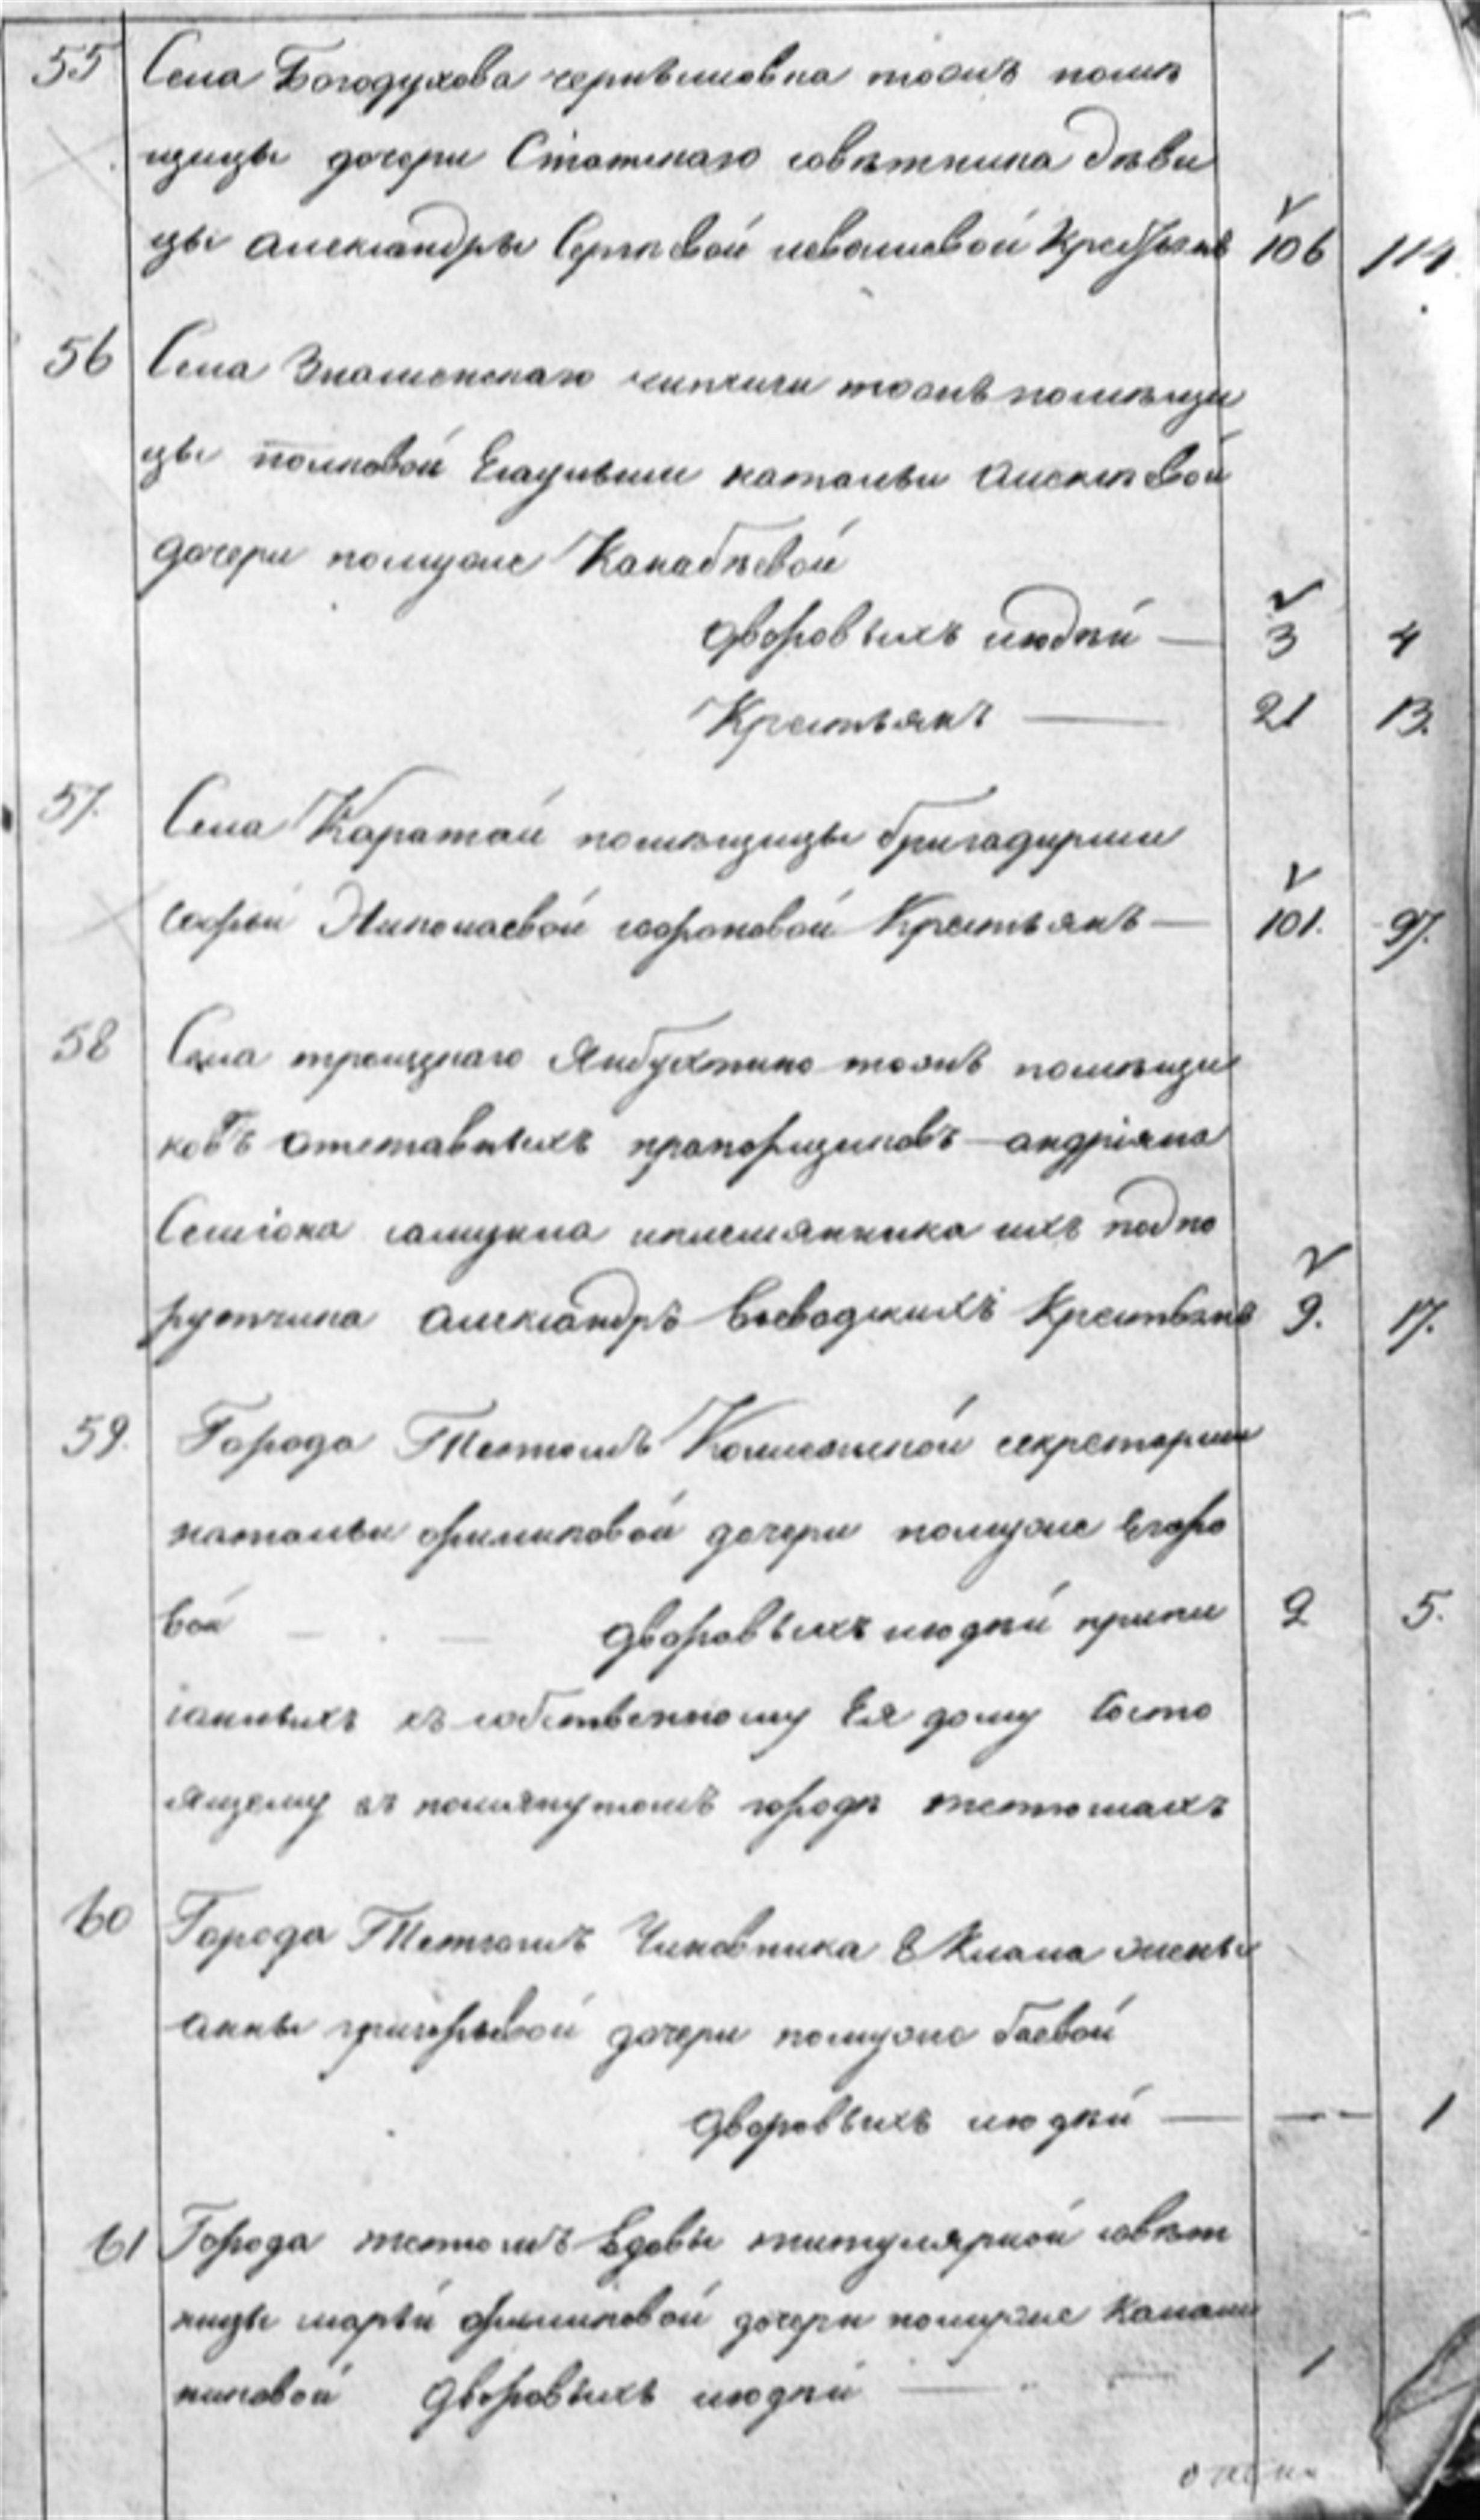 55 Села Богодухова чернышовка тожъ помѣ
щицы дочери Статскаго совѣтника дѣви
цы александры Сергѣевой левашевой Крестьянъ 106 114
56 Села Знаменскаго тожъ помѣщи
цы полковой Есаулши натальи алексѣевой
дочери помужѣ Канабѣевой
дворовыхъ людѣй — 3 4
Крестьянъ — 21 13.
57. Села Каратай помѣщицы бригадирши
софьи Николаевой софоновой Крестьянъ — 101. 97.
58 Села троицкаго Янбухтино тожъ помѣщи
ковъ отставныхъ прапорщиковъ андріяна
Семіона самуила иплемянника ихъ подпо
рутчика александръ Воеводскихъ Крестьянъ 9. 17.
59. Города Тетюшъ Коллежской секретарши
натальи филиповой дочери помужѣ Егоро
вой — — дворовыхъ людѣй припи 2 5.
санныхъ къ собственному Ея дому состо
ящему въ помянутомъ городѣ тетюшахъ
60 Города Тетюшъ Чиновника 8 Класа жены
анны григорьевой дочери помужѣ баевой
дворовыхъ людѣй — — — 1
61 Города тетюшъ вдовы титулярной совѣт
ницы марьи филиповой дочери помужѣ
дворовыхъ людѣй — 1